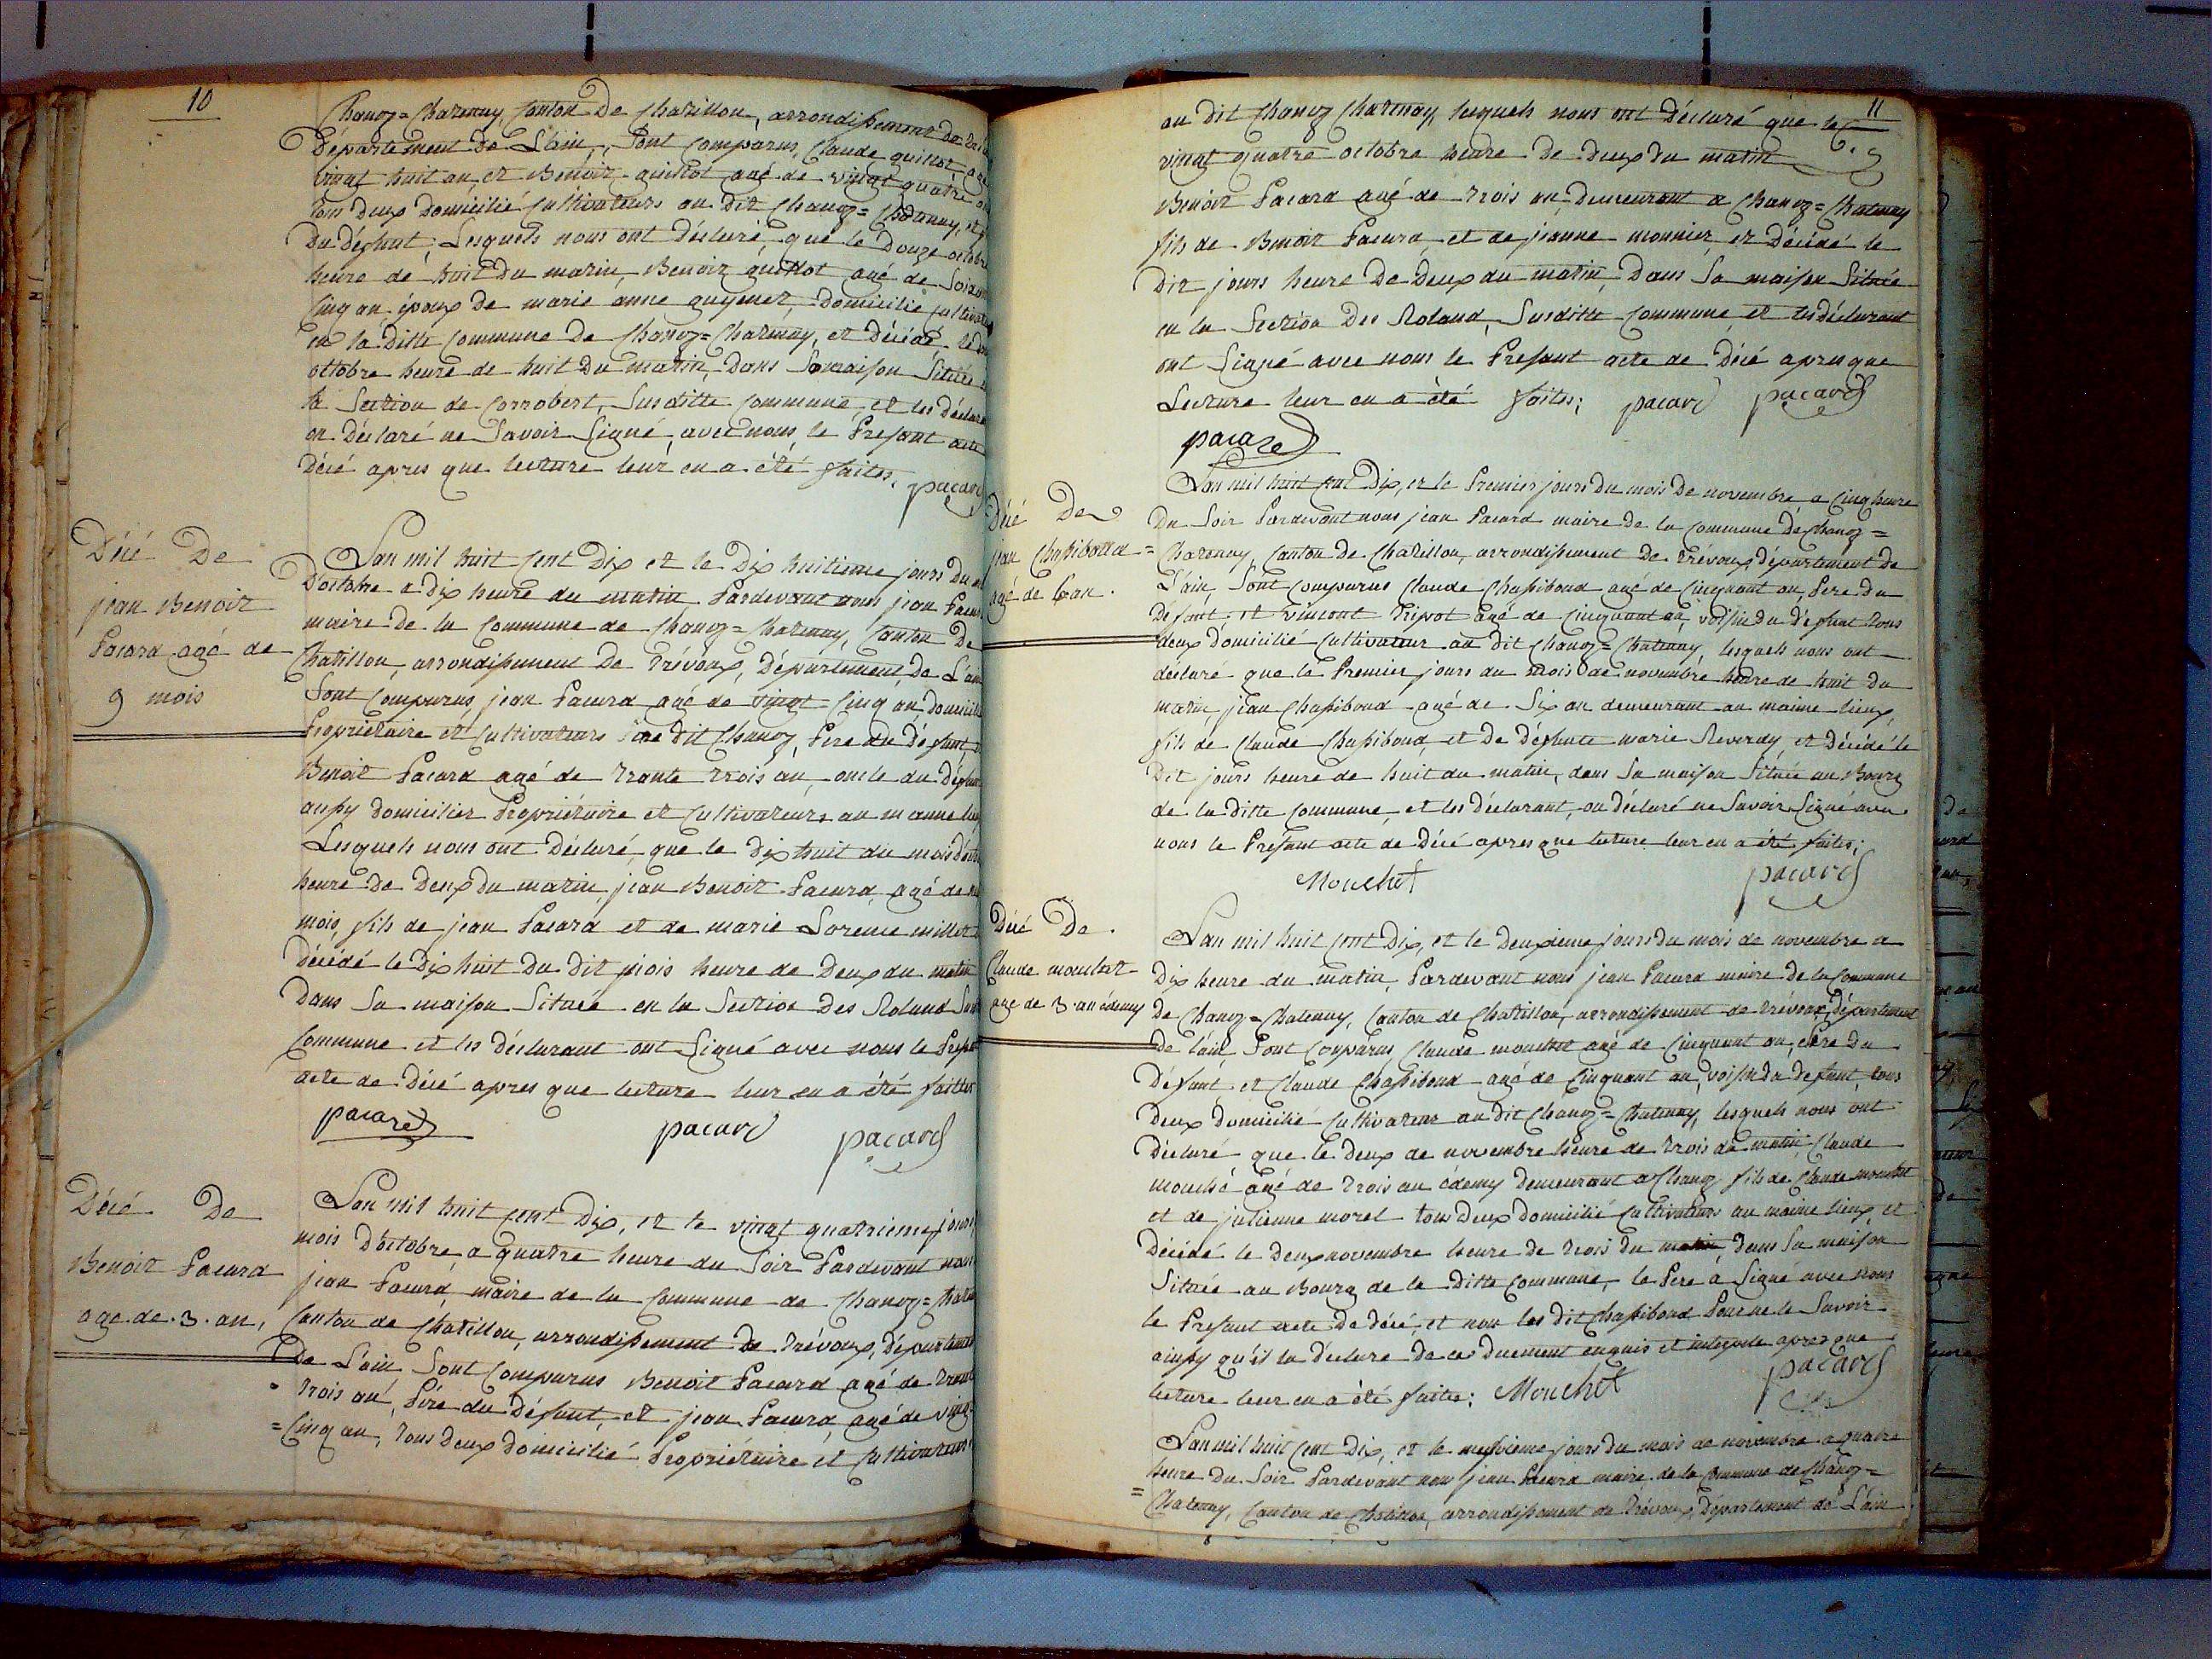 10
Chanoz=Chatenay, Canton De Chatillon, arrondissement de
Département De L'ain, Sont Comparus, Claude guillot agé
vingt huit an et Benoit guillot agé de vingt quatre an
tous deux Domicilié Cultivateurs au Dit Chanoz=Chatenay, et
Du Défunt, Lesquels nous ont Déclaré, que le Douze octobre
heure de huit Du matin, Benoit guillot agé de Soixante
Cinq an, époux De marie anne guyenet, Domicilié Cultivateur
en la Ditte Commune De Chanoz=Chatenay, et Décédé le
octobre heure de huit Du matin, Dans Sa maison Située
la Section de Corrobert, Susditte Commune, et les Déclarant
on Déclaré ne Savoir Signé avec nous, le Present acte
Décé apres que lecture leur en a été faites.
pacard
Décé De
jean Benoit
Pacard agé de
9 mois
L'an mil huit Cent Dix et le Dix huitieme jours Du
D'octobre a Dix heure du matin Pardevant nous jean Pacard
maire De la Commune de Chanoz=Chatenay, Canton De
Chatillon, arrondissement De Trévoux, Département De L'ain
Sont Comparus, jean Pacard agé de vingt=Cinq an, Domicilié
Propriétaire et Cultivateurs au dit Chanoz, Pere du Défunt
Benoit Pacard agé de Trante Trois an, oncle du Défunt
aussy Domicilier Propriétaire et Cultivateurs au maime lieu
Lesquels nous ont Déclaré, que le Dix huit du mois d'octobre
heure De Deux Du matin, jean Benoit Pacard, agé de
mois, fils de jean Pacard et de marie Lorence millet
Décédé le Dix huit Du Dit mois heure de Deux du matin
Dans Sa maison Située en la Section Des Roland
Commune et les Déclarant ont Signé avec nous le Present
acte de Décé apres que lecture leur en a été faittes
pacard pacard pacard
Décé De
Benoit Pacard
age. de. 3. an,
L'an mil huit Cent Dix, et le vingt quatrieme jours
mois D'octobre, a quatre heure du Soir Pardevant nous
jean Pacard, maire de la Commune de Chanoz=Chatenay
Canton de Chatillon, arrondissement De Trévoux, Département
De L'ain, Sont Comparus Benoit Pacard agé de Trante
Trois an, Pére du Défunt, et jean Pacard, agé de vingt
=Cinq an, Tous Deux Domicilié Propriétaire et Cultivateurs
11
au Dit Chanoz Chatenay, lesquels nous ont Déclaré que le
vingt quatre octobre heure de deux du matin
Benoit Pacard agé de Trois an, Demeurant a Chanoz=Chatenay
fils de Benoit Pacard, et de jeanne monnier, et Décédé le
Dit jours heure De Deux du matin, Dans Sa maison Située
en la Section Des Roland, Susditte Commune, et les déclarant
ont Signé avec nous le Present acte de Décé apres que
Lecture leur en a été faites; pacard pacard
pacard
Décé De
jean Chassiboud
agé de 6 an.
L'an mil huit Cent Dix, et le Premier jours Du mois De novembre a Cinq heure
Du Soir Pardevant nous jean Pacard maire De la Commune De Chanoz=
=Chatenay, Canton de Chatillon, arrondissement De Trévoux, Département De
L'ain, Sont Comparus Claude Chassiboud agé de Cinquant an, Pere Du
Défunt, et vincent Tripot agé de Cinquant an, voisin Du Défunt tous
deux Domicilié Cultivateur au Dit Chanoz=Chatenay, lesquels nous ont
déclaré que le Premier jours du mois de novembre heure de huit Du
matin, jean Chassiboud agé de Six an demeurant au maime lieux,
fils de Claude Chassiboud, et De Défunte marie Reverdy, et Décédé le
Dit jours heure de huit du matin, dans Sa maison Située au Bourg
de la Ditte Commune, et les Déclarant, on Déclaré ne Savoir Signé avec
nous le Présant acte de Décé apres que lecture leur en a été faites;
Mouchet pacard
Décé De.
Claude mouchet
agé de 3. an édemy
L'an mil huit Cent Dix, et le Deuxieme jours Du mois de novembre a
Dix heure du matin, Pardevant nous jean Pacard maire De la Commune
De Chanoz=Chatenay, Canton de Chatillon, arrondissement de Trévoux, Département
De l'ain Sont Comparus, Claude mouchet agé de Cinquant an, Pere Du
Défunt, et Claude Chassiboud agé de Cinquant an, voisin Du Defunt, tous
Deux Domicilié Cultivateur au Dit Chanoz=Chatenay, lesquels nous ont
Déclaré que le Deux de novembre heure de Trois du matin, Claude
mouché agé de Trois an édemy Demeurant a Chanoz fils de Claude mouchet
et de julienne morel tous Deux Domicilié Cultivateurs au maime lieux, et
Décédé le Deux novembre heure de Trois Du matin, Dans Sa maison
Située au Bourg de la Ditte Commune, le Pere a Signé avec nous
le Présant acte De Décé, et non les Dit Chassiboud Pour ne le Savoir
ainssy qu'il la Déclaré De ce Duement enquis et interpelé apres que
lecture leur en a été faite; Mouchet pacard
L'an mil huit Cent Dix, et le neuvieme jours Du mois de novembre a quatre
heure Du Soir Pardevant nous jean Pacard maire de la Commune de Chanoz=
=Chatenay, Canton de Chatillon, arrondissement de Trévoux, Département de L'ain